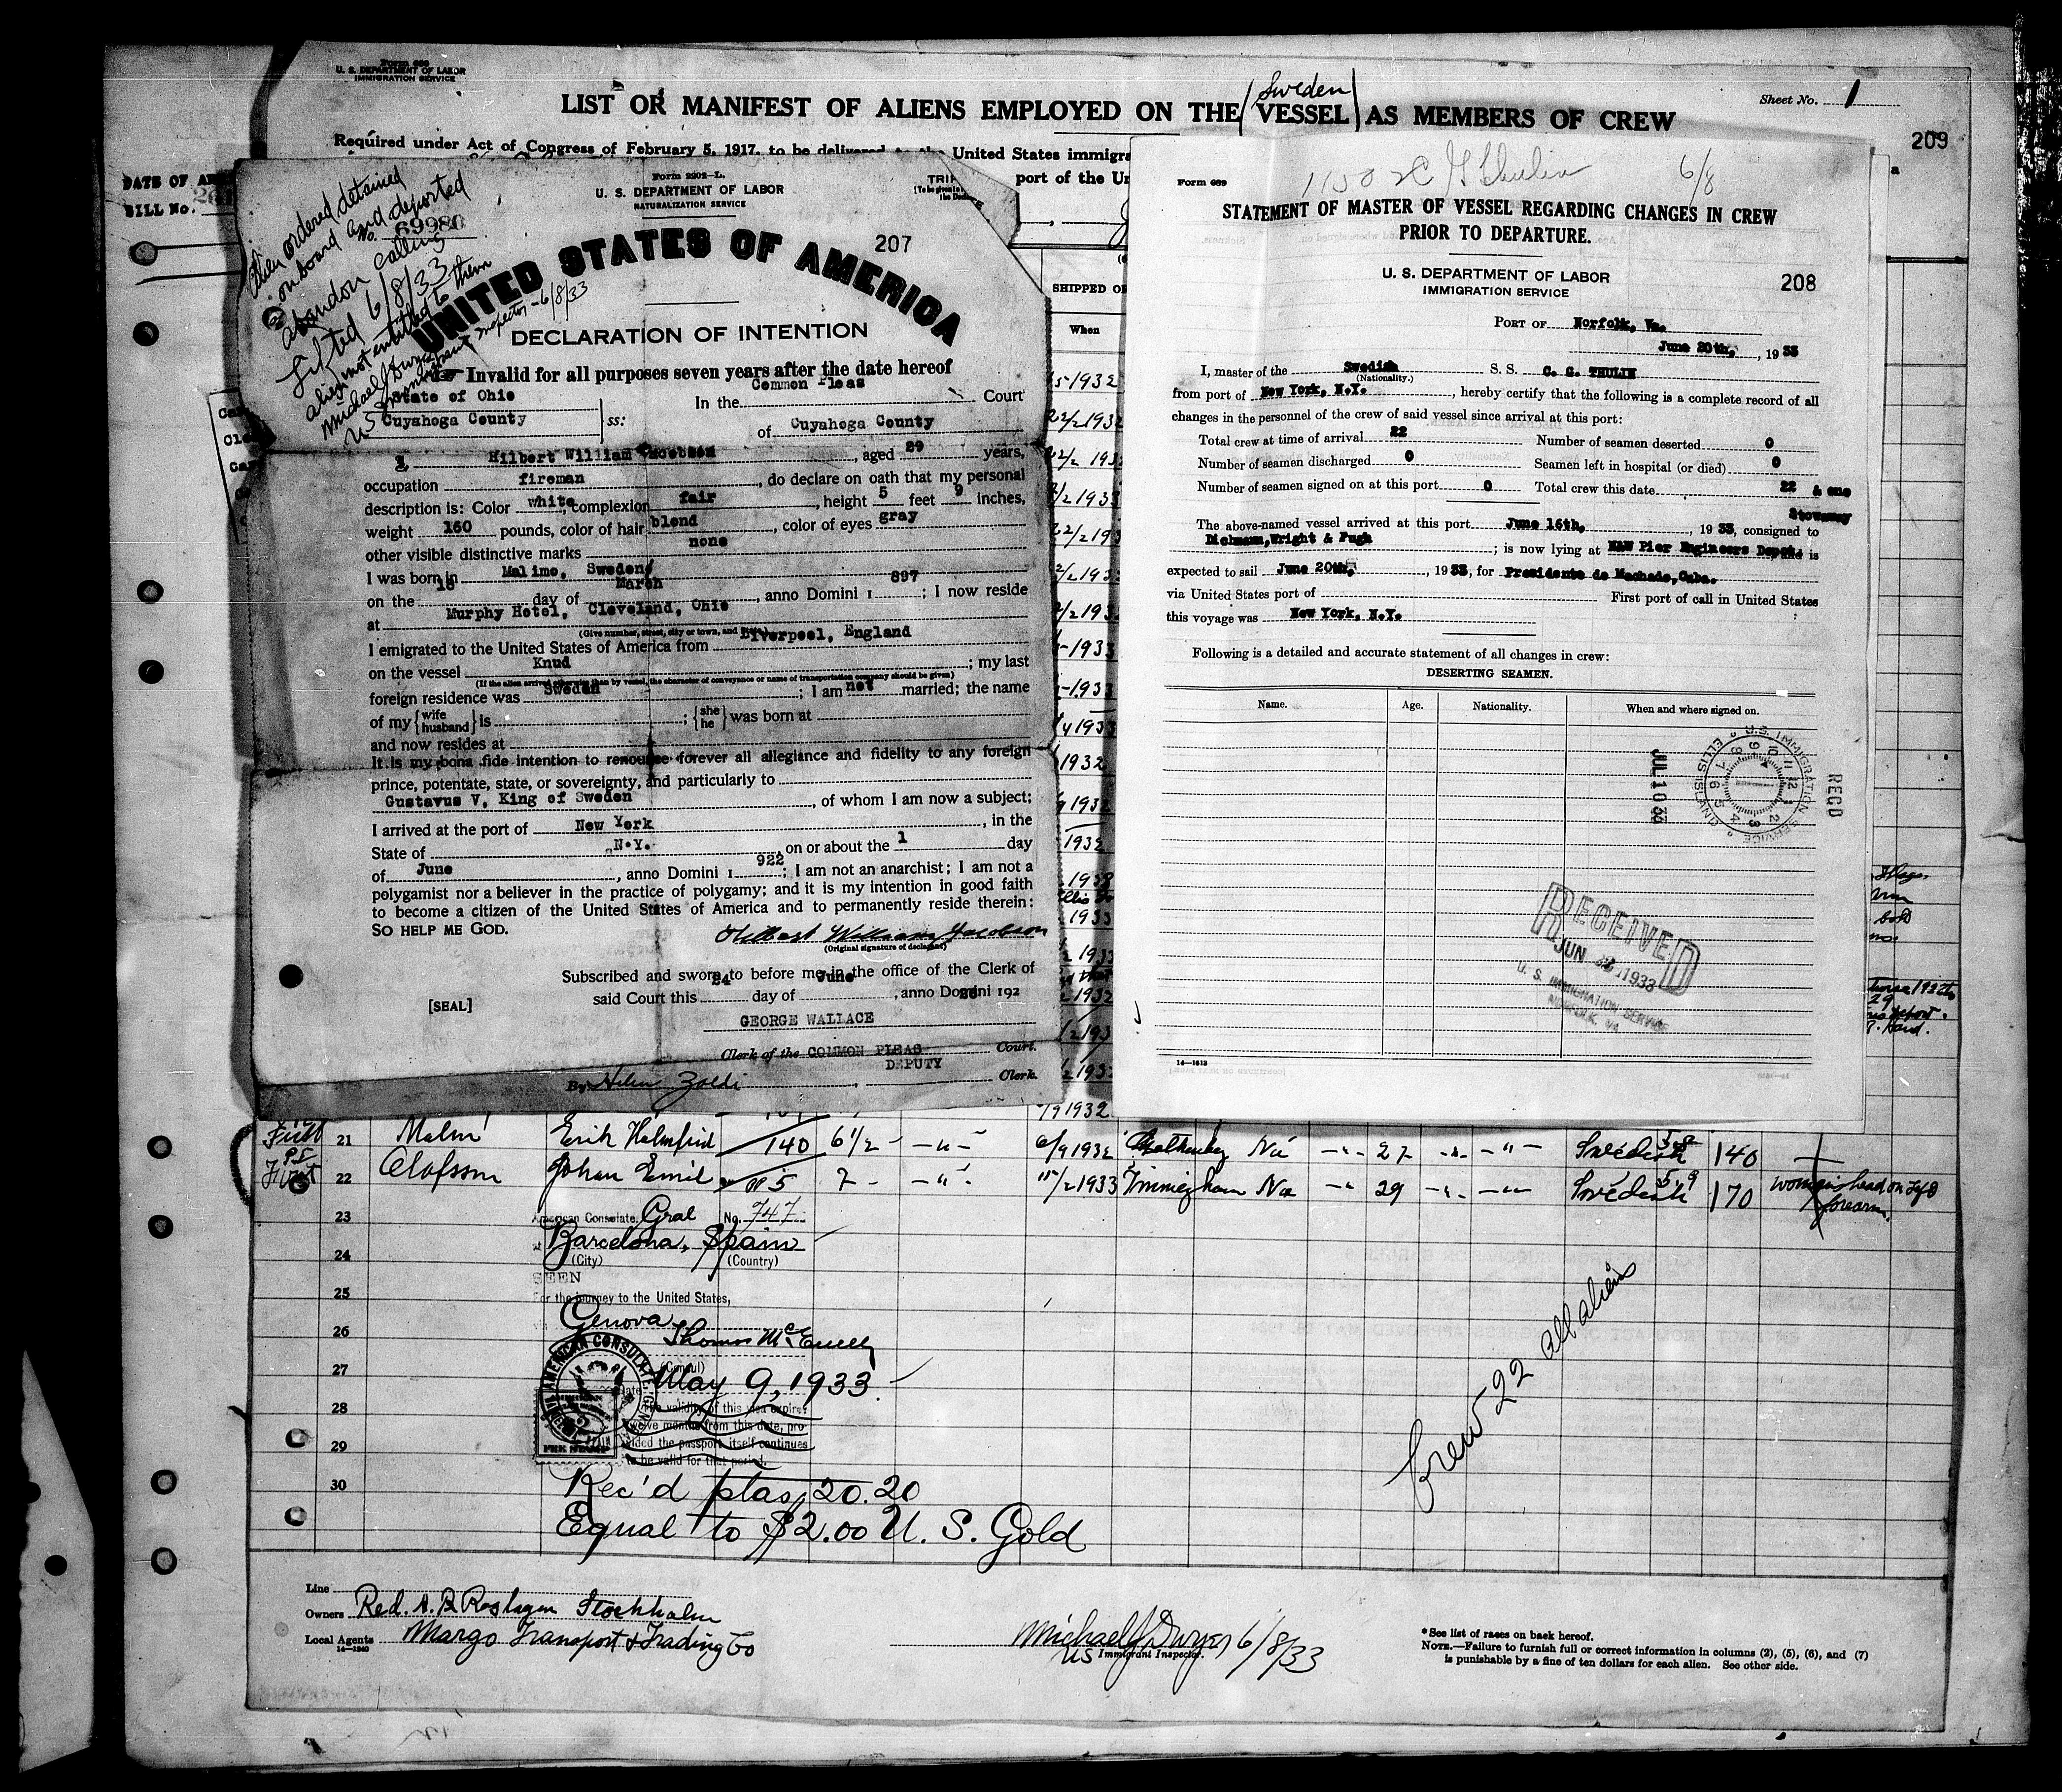 Form 689
U. S. DEPARTMENT OF LABOR
IMMIGRATION SERVICE
Sweden
LIST OR MANIFEST OF ALIENS EMPLOYED ON THE (VESSEL) AS MEMBERS OF CREW
Sheet No. 1
209
Required under Act of Congress of February 5, 1917, to be delivered to the United States immigra
port of the Un
DATE OF AR
BILL No.
Form 2202-L.
U. S. DEPARTMENT OF LABOR
NATURALIZATION SERVICE
TRIP
(To be given to
the Decl
No. 69980
207
Alien ordered detained
on board and deported
abandon calling
Lifted 6/8/33
alien not entitled to them
Michael J Dwyer
US Immigrant Inspector - 6/8/33
UNITED STATES OF AMERICA
DECLARATION OF INTENTION
Invalid for all purposes seven years after the date hereof
State of Ohio
Cuyahoga County ss:
In the Common Pleas Court
of Cuyahoga County
I, Hilbert William Jacobson, aged 29 years,
occupation fireman, do declare on oath that my personal
description is: Color white, complexion fair, height 5 feet 9 inches,
weight 160 pounds, color of hair blond, color of eyes gray
other visible distinctive marks none
I was born in Malimo, Sweden
on the 18 day of March, anno Domini 1 897; I now reside
at Murphy Hotel, Cleveland, Ohio
(Give number, street, city or town, and State.)
I emigrated to the United States of America from Liverpool, England
on the vessel Knud; my last
(If the alien arrived otherwise than by vessel, the character of conveyance or name of transportation company should be given)
foreign residence was Sweden; I am not married; the name
of my {wife husband} is ; {she he} was born at
and now resides at
It is my bona fide intention to renounce forever all allegiance and fidelity to any foreign
prince, potentate, state, or sovereignty, and particularly to
Gustavus V, King of Sweden, of whom I am now a subject;
I arrived at the port of New York, in the
State of N.Y. on or about the 1 day
of June, anno Domini 1 922; I am not an anarchist; I am not a
polygamist nor a believer in the practice of polygamy; and it is my intention in good faith
to become a citizen of the United States of America and to permanently reside therein:
SO HELP ME GOD.
Hilbert William Jacobson
(Original signature of declarant)
Subscribed and sworn to before me in the office of the Clerk of
[SEAL]
said Court this 24 day of June, anno Domini 192
GEORGE WALLACE
Clerk of the COMMON PLEAS Court.
DEPUTY
By Helen Zoldi, Clerk.
SHIPPED OR
When
Form 689
1150 C G Thulin 6/8
STATEMENT OF MASTER OF VESSEL REGARDING CHANGES IN CREW
PRIOR TO DEPARTURE.
U. S. DEPARTMENT OF LABOR
IMMIGRATION SERVICE
208
PORT OF Norfolk, Va.
June 20th, 1933
I, master of the Swedish S. S. C. G. THULIN
(Nationality.)
from port of New York, N.Y., hereby certify that the following is a complete record of all
changes in the personnel of the crew of said vessel since arrival at this port:
Total crew at time of arrival 22 Number of seamen deserted 0
Number of seamen discharged 0 Seamen left in hospital (or died) 0
Number of seamen signed on at this port 0 Total crew this date 22 & one
Stowaway
The above-named vessel arrived at this port June 16th, 1933, consigned to
Dichmann, Wright & Pugh; is now lying at N&W Pier Engineers Depot & is
expected to sail June 20th, 1933, for Presidente de Machado, Cuba.
via United States port of First port of call in United States
this voyage was New York, N.Y.
Following is a detailed and accurate statement of all changes in crew:
DESERTING SEAMEN.
Name. Age. Nationality. When and where signed on.
U.S. IMMIGRATION SERVICE ELLIS ISLAND
JUL 10 33
REC'D
RECEIVED
JUN 1933
U. S. IMMIGRATION SERVICE
NORFOLK, VA.
14-1613
21 Malm Erik Halmfrid 140 6 1/2 - -"- 6/9 1932 Gothenburg No -"- 27 -"- -"- Swedish 140
22 Olofsson Johan Emil 115 7 - -"- 15/2 1933 Immingham No -"- 29 -"- -"- Swedish 5.9 170 woman's head on left
forearm.
23
American Consulate Gral No. 747
24
at Barcelona, Spain
(City) (Country)
SEEN
25
For the journey to the United States,
Genova
26
(Consul)
27
AMERICAN CONSULATE GENERAL
FEE STAMP
Date May 9, 1933.
28
The validity of this visa expires
twelve months from this date, pro-
29
vided the passport itself continues
to be valid for that period.
30
Rec'd ptas, 20.20
Equal to $2.00 U. S. Gold
Crew 22 all aliens
Line
Owners Red. A.B. Roslagen Stockholm
Local Agents Margo Transport & Trading Co
14-1240
Michael J Dwyer 6/8/33
US Immigrant Inspector.
*See list of races on back hereof.
NOTE.—Failure to furnish full or correct information in columns (2), (5), (6), and (7)
is punishable by a fine of ten dollars for each alien. See other side.